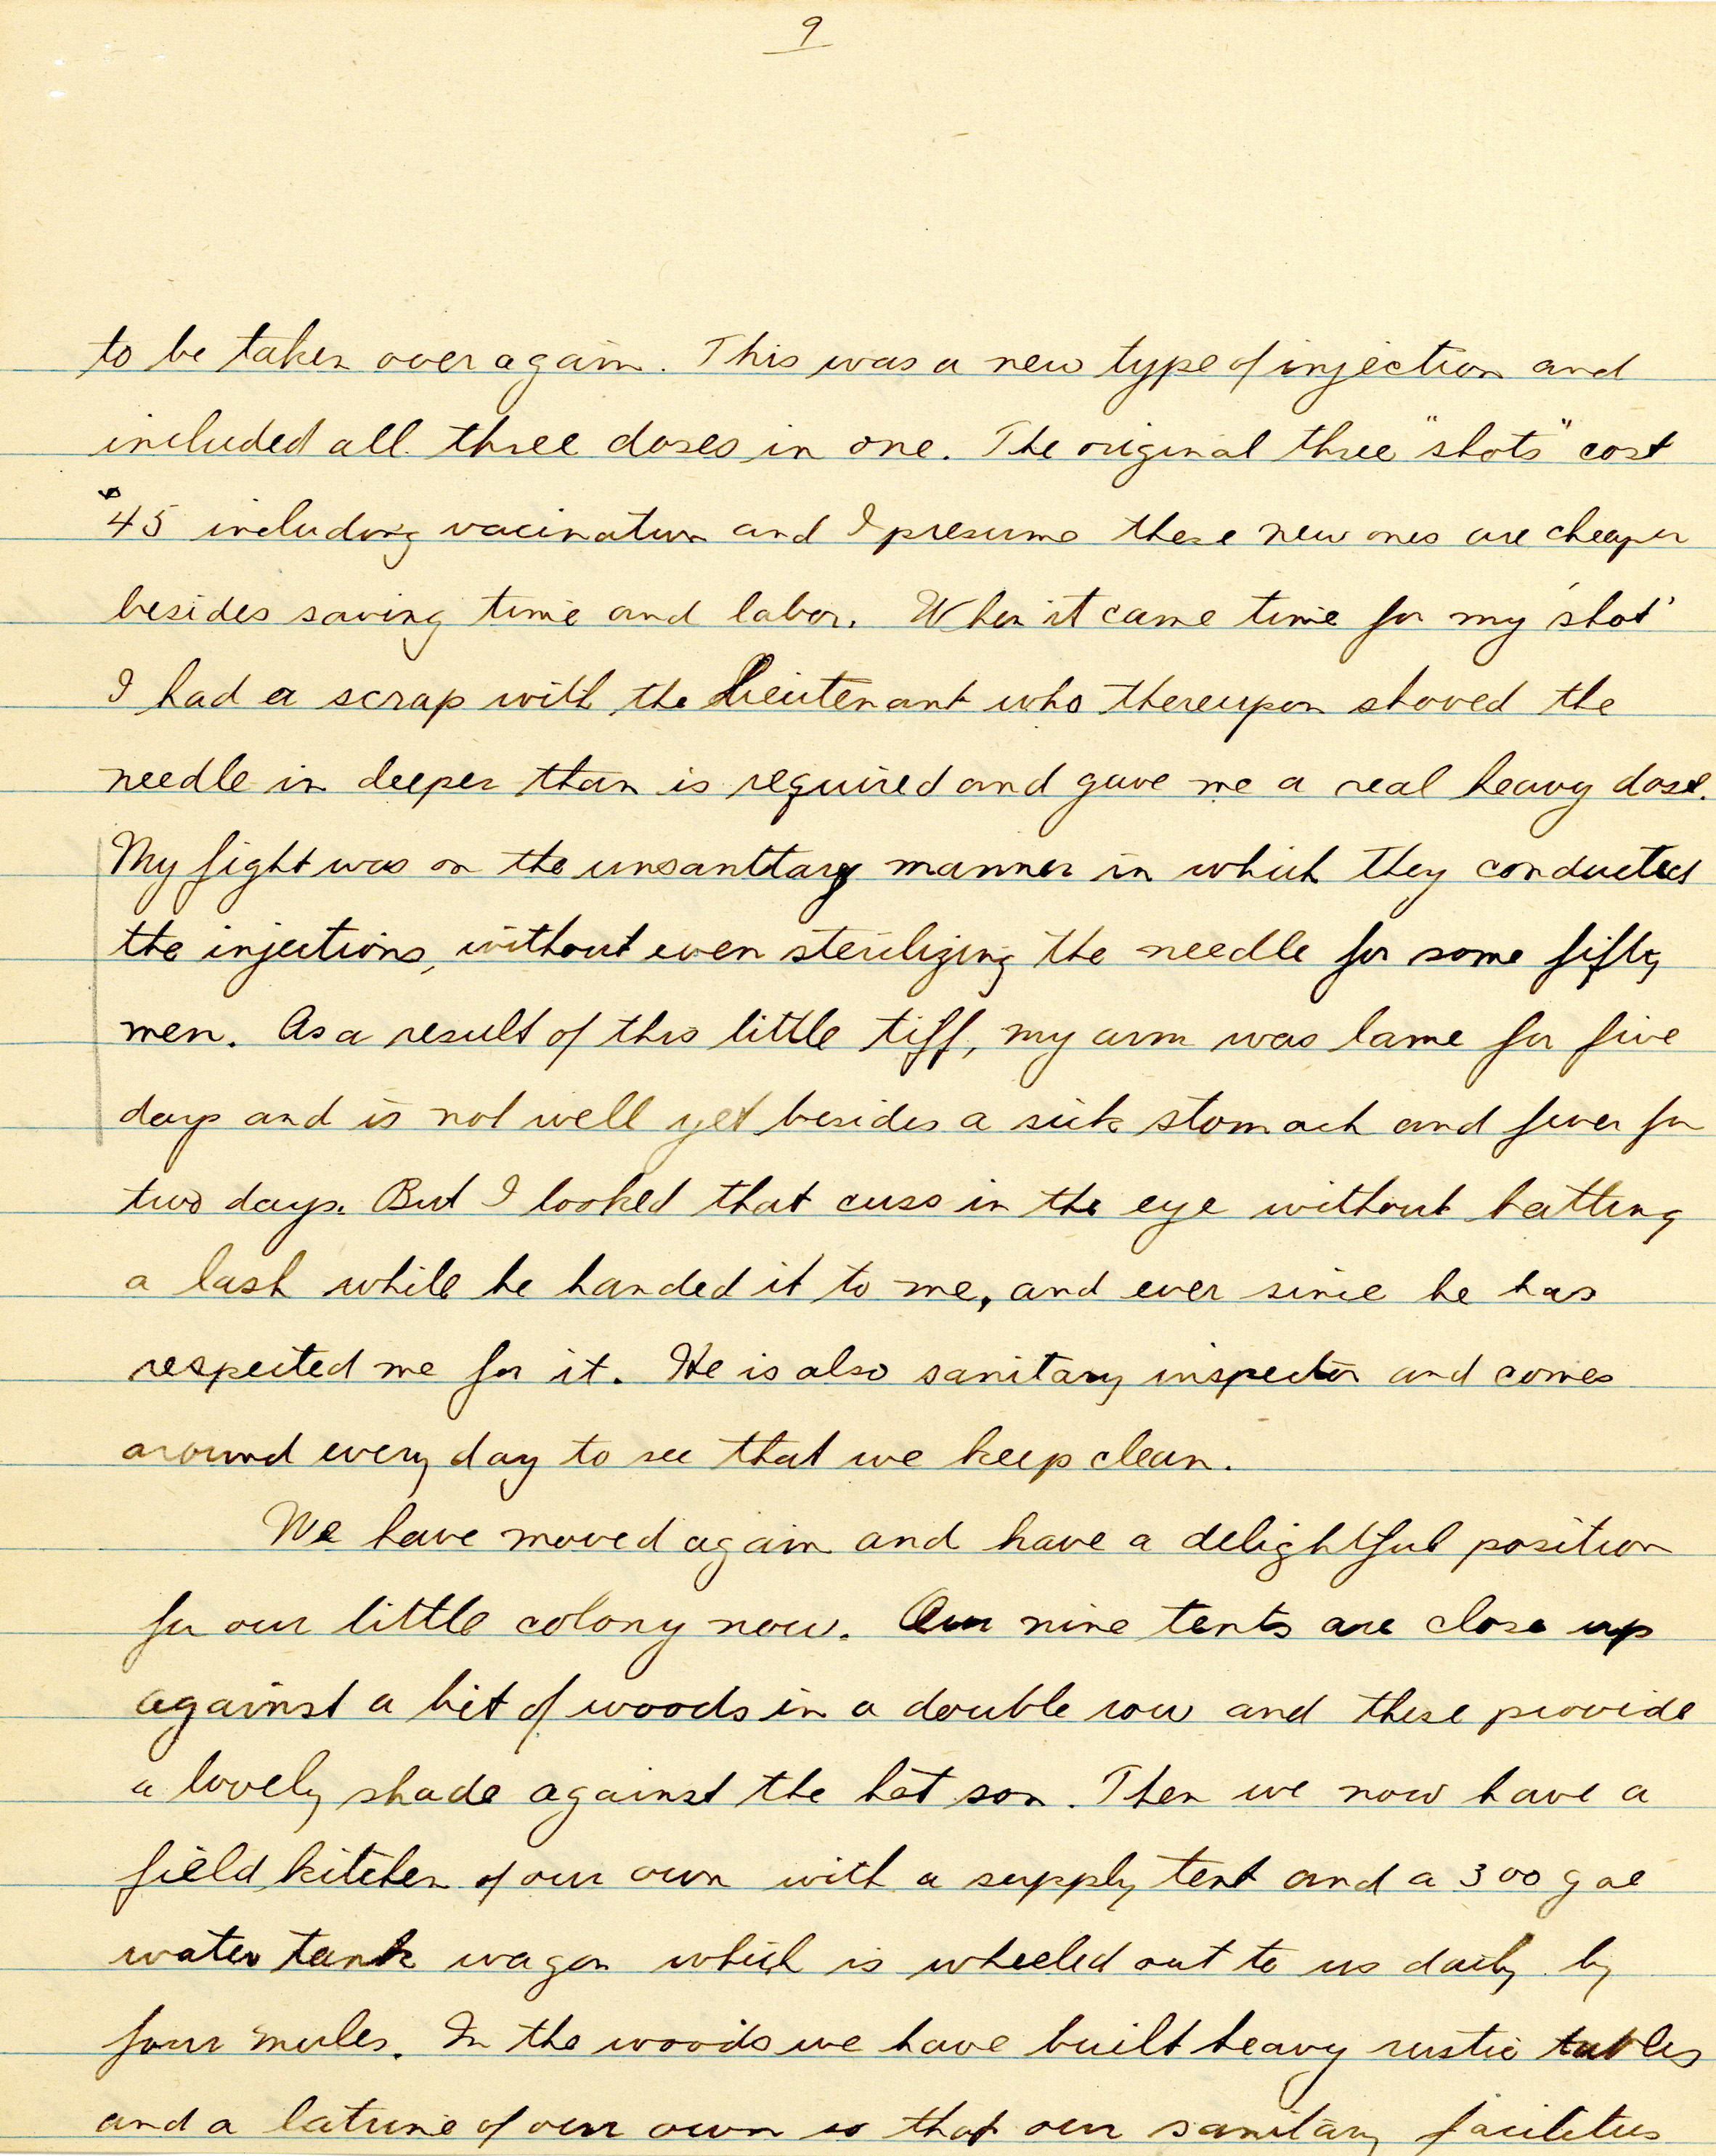 9
to be taken over again. This was a new type of injection and
included all three doses in one. The original three "shots" cost
$45 including vacination and I presume these new ones are cheaper
besides saving time and labor. When it came time for my 'shot'
I had a scrap with the Lieutenant who thereupon shoved the
needle in deeper than is required and gave me a real heavy dose.
My fight was on the unsanttary manner in which they conducted
the injections, without even sterilizing the needle for some fifty
men. As a result of this little tiff, my arm was lame for five
days and is not well yet besides a sick stomach and fever for
two days. But I looked that cuss in the eye without batting
a lash while he handed it to me, and ever since he has
respected me for it. He is also sanitary inspector and comes
around every day to see that we keep clean.
We have moved again and have a delightful position
for our little colony now. Our nine tents are close up
against a bit of woods in a double row and these provide
a lovely shade against the hot son. Then we now have a
field kitchen of our own with a supply tent and a 300 gal
water tank wagon which is wheeled out to us daily by
four mules. In the woods we have built heavy rustic tables
and a latrine of our own so that our sanitary facilities